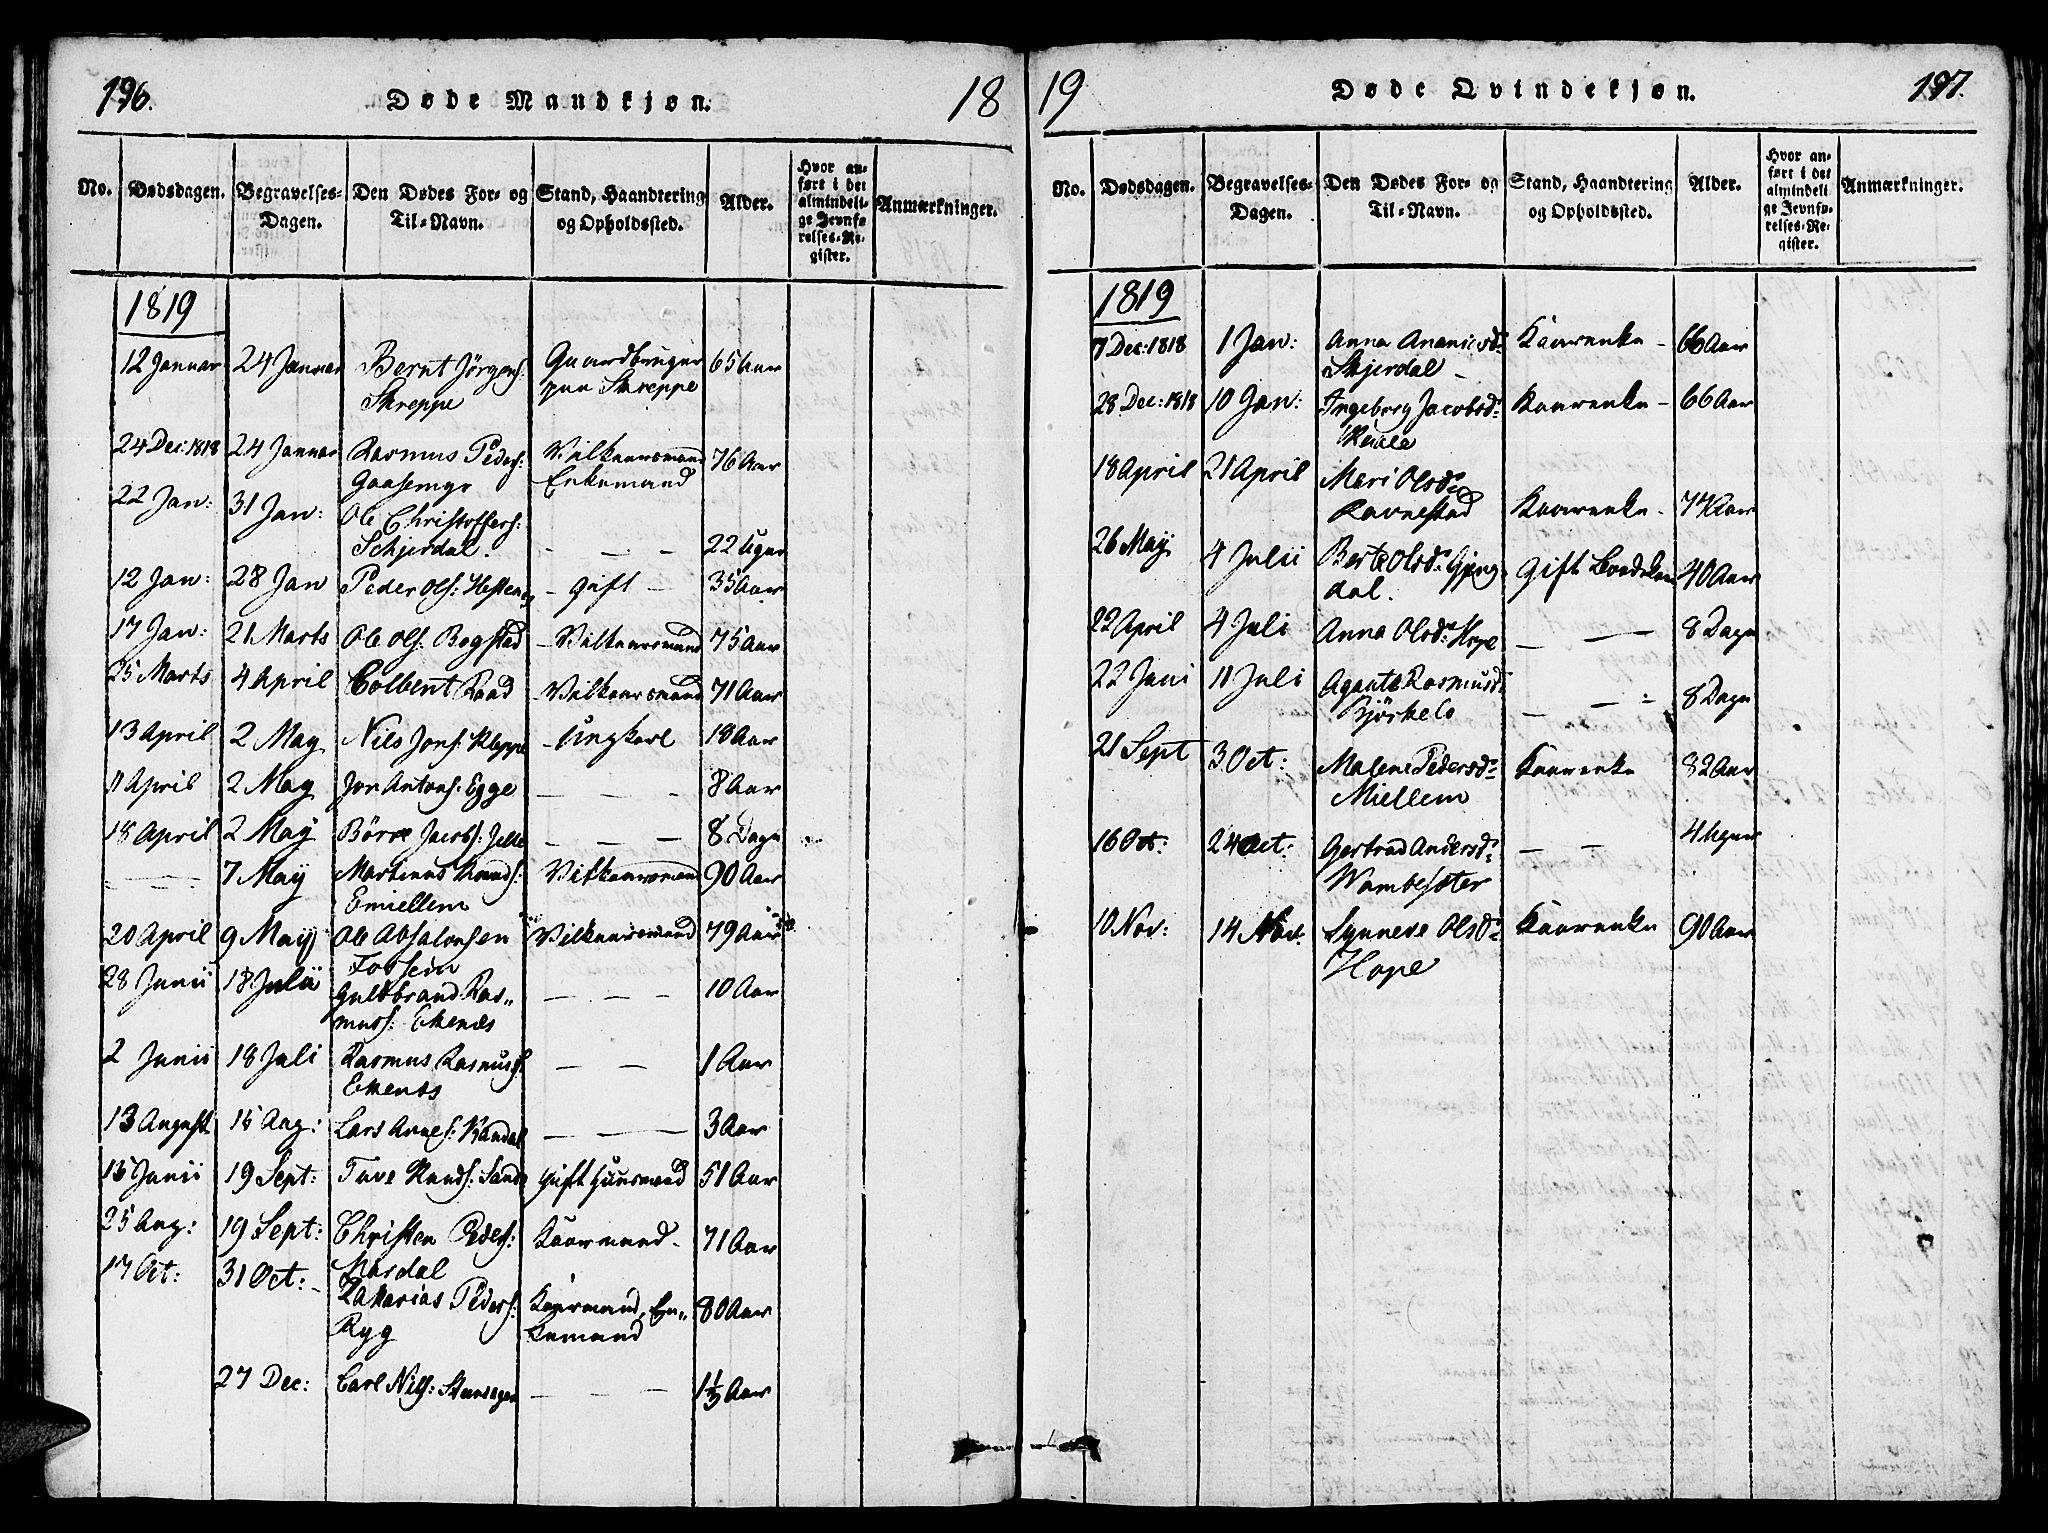 196.
Døde Mandkjøn.
18
No.
Dødsdagen.
Begravelses-
Dagen.
Den Dødes For- og
Til-Navn.
Stand, Haandtering
og Opholdssted.
Alder.
Hvor an-
ført i det
almindeli-
ge Jevnfø-
relses-Re-
gister.
Anmærkninger.
1819
12 Januar 24 Januar Bernt Jörgens: Gaardbruger 65 Aar
Skreppe paa Skreppe
24 Dec: 1818 24 Januar Rasmus Peders: Vilkaarsmand 76 Aar
Gaasemyr Enkemand
22 Jan: 31 Jan: Ole Christoffers:
Schjerdal. — — — 22 Uger
12 Jan: 28 Jan Peder Ols: — Gift — 35 Aar
17 Jan: 21 Marts Ole Ols: Bogstad — Vilkaarsmand 75 Aar
25 Marts 4 April Colbent Raad — Vilkaarsmand 71 Aar
13 April 2 May Nils Jons: Kleppe — Ungkarl 18 Aar
11 April 2 May Jon Antons: Egge — — — 8 Aar
18 April 2 May Börre Jacobs: — — — 8 Dage
— — — 7 May Martinus Knuds: Vilkaarsmand 90 Aar
Emiellem
20 April 9 May Ole Absalonsen Vilkaarsmand 79 Aar
28 Junii 18 Julii Guldbrand Ras- — — — 10 Aar
muss: Ekenæs
2 Junii 18 Juli Rasmus Rasmuss: — — — 1 Aar
Ekenæs
13 August 15 Aug: Lars — — — 3 Aar
15 Junii 19 Sept: Tave Knuds: Sande Gift Huusmand 51 Aar
25 Aug: 19 Sept: Christen Peders: Kaarmand - 71 Aar
Mardal
17 Oct: 31 Oct: - Zakarias Peders: Kaarmand, En- 80 Aar
Ryg kemand
27 Dec: Carl Nils: — — — 1½ Aar
19
Døde Qvindekjøn.
197.
No.
Dødsdagen.
Begravelses-
Dagen.
Den Dødes For- og
Til-Navn.
Stand, Haandtering
og Opholdssted.
Alder.
Hvor an-
ført i det
almindeli-
ge Jevnfø-
relses-Re-
gister.
Anmærkninger.
1819
7 Dec: 1818 1 Jan: Anna Ananiasd: Kaarenke - 66 Aar
Skjerdal
28 Dec: 1818 10 Jan: Ingeborg Jacobsd: Kaarenke - 66 Aar
18 April 21 April Mari Olsd:
Ravnestad Kaarenke - 77 Aar
26 May 4 Julii Berte Olsd: Gjeng- Gift 40 Aar
dal.
22 April 4 Juli Anna Olsd: Hope — — 8 Dage
22 Juni 11 Juli Agaute Rasmusd: — — - 8 Dage
Björkelo
21 Sept 3 Oct: Malene Pedersd: Kaarenke 82 Aar
Miellem
16 Oct: 24 Oct: Gertrud Andersd: — — 4 Uger
10 Nov: 14 Nov. Synneve Olsd: Kaarenke 90 Aar
Hope